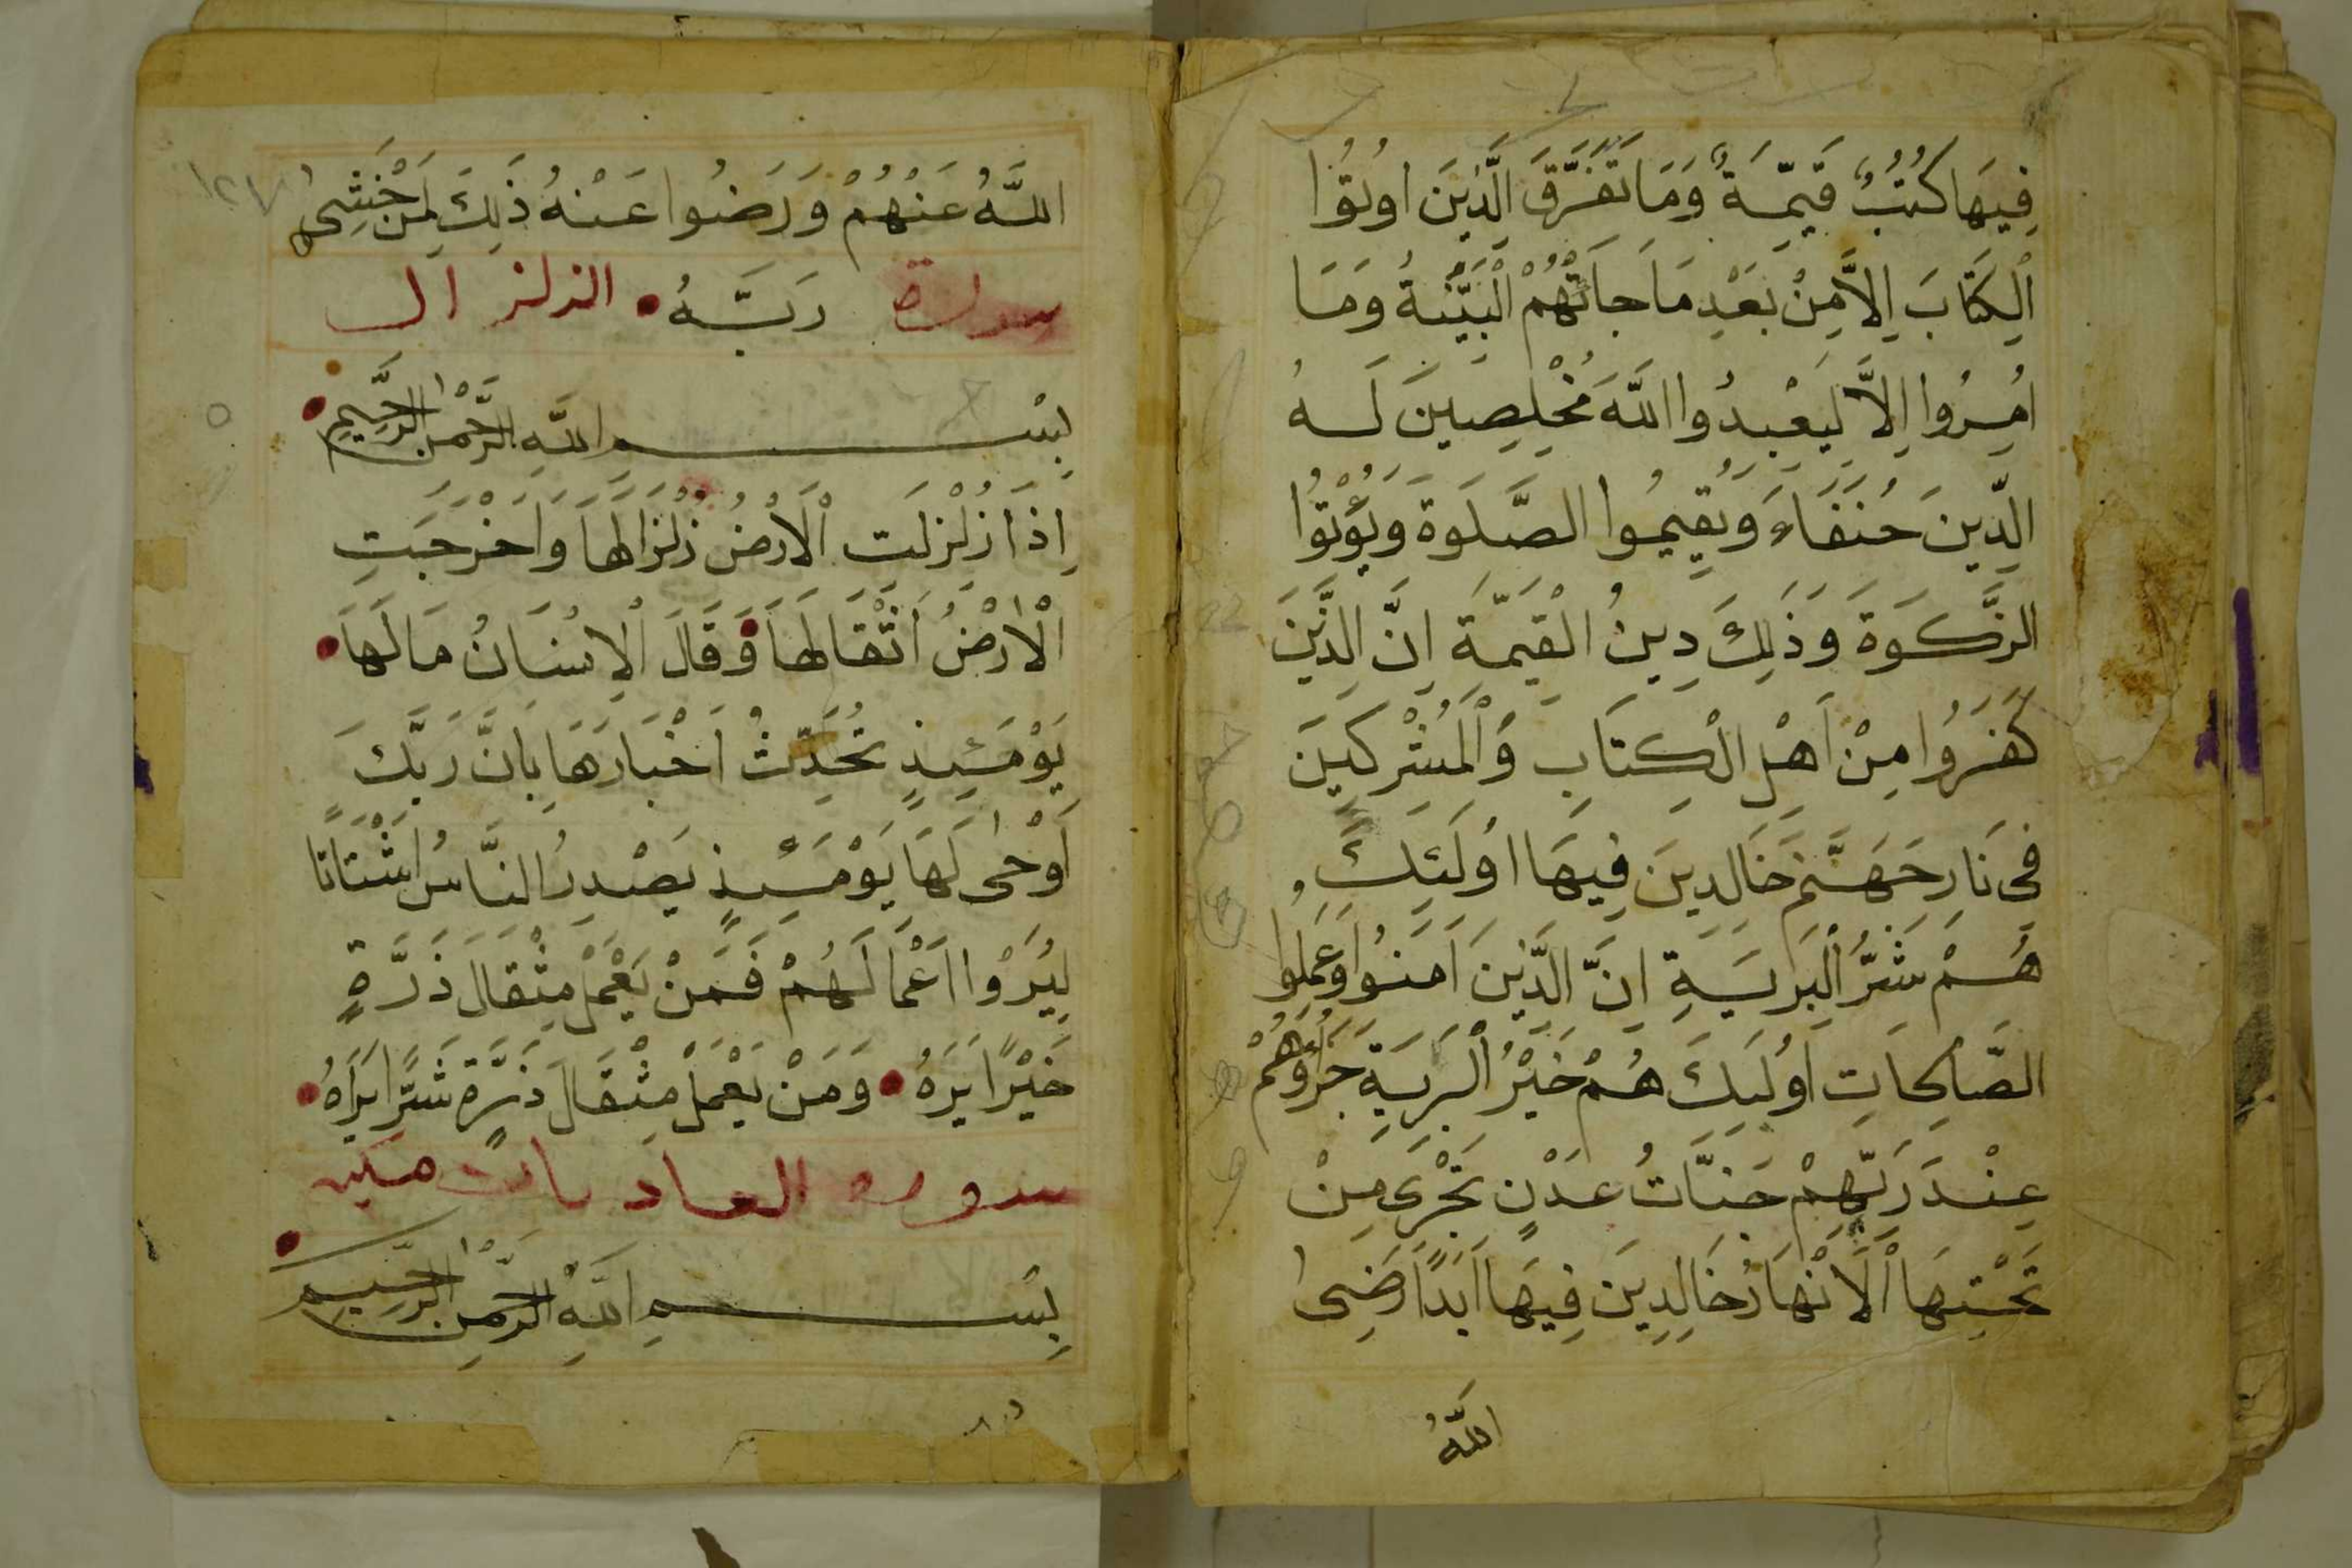 فِيهَا كُتُبٌ قَيِّمَةٌ وَمَا تَفَرَّقَ الَّذِينَ اوُتُوا
اْلكِتَابَ اِلاَّ مِنْ بَعْدِ مَا جَاتْهُمْ الْبَيِّنَةُ وَمَا
اُمِرُوا اِلاَّ لِيَعْبِدُوا اللَّهَ مُخْلِصِينَ لَهُ
الدِّينَ حُنَفَاءَ وَيُقِيمُوا الصَّلَوةَ وَيُؤْتُوا
الزَّكَوةَ وَذَلِكَ دِينُ الْقَيِّمَةِ اِنَّ الَّذِينَ
كَفَرُوا مِنْ اَهْلِ الْكِتَابِ وَالْمُشْرِكِينَ
فِي نَارِ جَهَنَّمَ خَالِدِينَ فِيهَا اوُلَئِكَ
هُمْ شَرُّ الْبَرِيَةِ اِنَّ الَّذِينَ اَمَنُوا وَعَمِلُوا
الصَّالِحَاتِ اوُلَئِكَ هُمْ خَيْرُ الْبَرِيَةِ جَزَؤُهُمْ
عِنْدَ رَبِّهِمْ جَنَّاتُ عَدْنٍ تَجْرِى مِنْ
تَحْتِهَا اْلَانْهَارُ خَالِدِينَ فِيهَا اَبَدًا رَضِىَ
اللَّهُ
١٢٧
اللَّهُ عَنْهُمْ وَرَضُوا عَنْهُ ذَلِكَ لِمَنْ خَشِىَ
سورة رَبَّهُ الزلزال
بِسْمِ اللَّهِ الرَّحْمَنِ الرَّحِيمِ
اِذَا زُلْزِلَتِ اْلَارْضُ زِلْزَالَهَا وَاَخْرَجَتِ
اْلاَرْضُ اَثْقَالَهَا وَقَالَ اْلاِنْسَانُ مَا لَهَا
يَوْمَئِذٍ تُحَدِّثُ اَخْبَارَهَا بِاَنَّ رَبَّكَ
اَوْحَى لَهَا يَوْمَئِذٍ يَصْدِرُ النَّاسُ اَشْتَاتًا
لِيُرَوْا اَعْمَالَهُمْ فَمَنْ يَعْمَلْ مِثْقَالَ ذَرَّةٍ
خَيْرًا يَرَهُ وَمَنْ يَعْمَلْ مِثْقَالَ ذَرَّةٍ شَرًّا يَرَاهُ
سوره العاديات مكيه
بِسْمِ اللَّهِ الرَّحْمَنِ الرَّحِيمِ